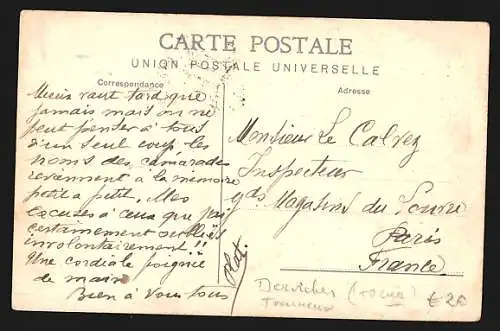 CARTE POSTALE
UNION POSTALE UNIVERSELLE
Correspondance
Adresse
Mieux vaut tard que
jamais mais on ne
peut penser à tous
d'un seul coup les
noms des camarades
reviennent à la mémoire
petit à petit. Mes
excuses à ceux que j'ai
certainement oubliés
involontairement !!
Une cordiale poignée
de main
Bien à vous tous
Monsieur Le Calvez
Inspecteur
gds Magasins du Louvre
Paris
France
Derviches
€ 20